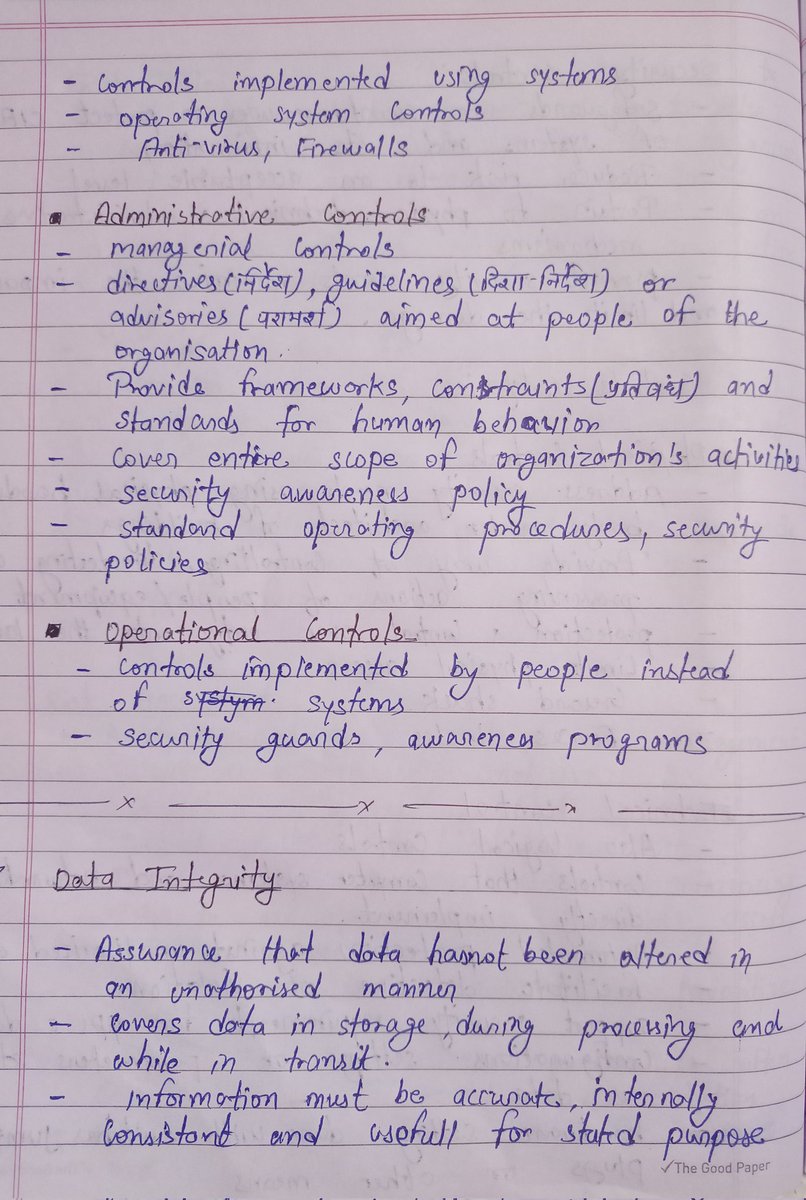 - Controls implemented using systems
- operating system controls
- Anti-virus, Firewalls
▪ Administrative Controls
- managerial controls
- directives (निर्देश), guidelines (दिशा-निर्देश) or
advisories (परामर्श) aimed at people of the
organisation.
- Provide frameworks, constraints (प्रतिबंध) and
standards for human behavior
- cover entire scope of organization's activities
- security awareness policy
- standard operating procedures, security
policies
▪ Operational Controls
- Controls implemented by people instead
of systym. systems
- security guards, awareness programs
x x x
Data Integrity
- Assurance that data hasnot been altered in
an unathorised manner
- covers data in storage, during processing and
while in transit.
- information must be accurate, internally
Consistant and usefull for stated purpose
✓The Good Paper